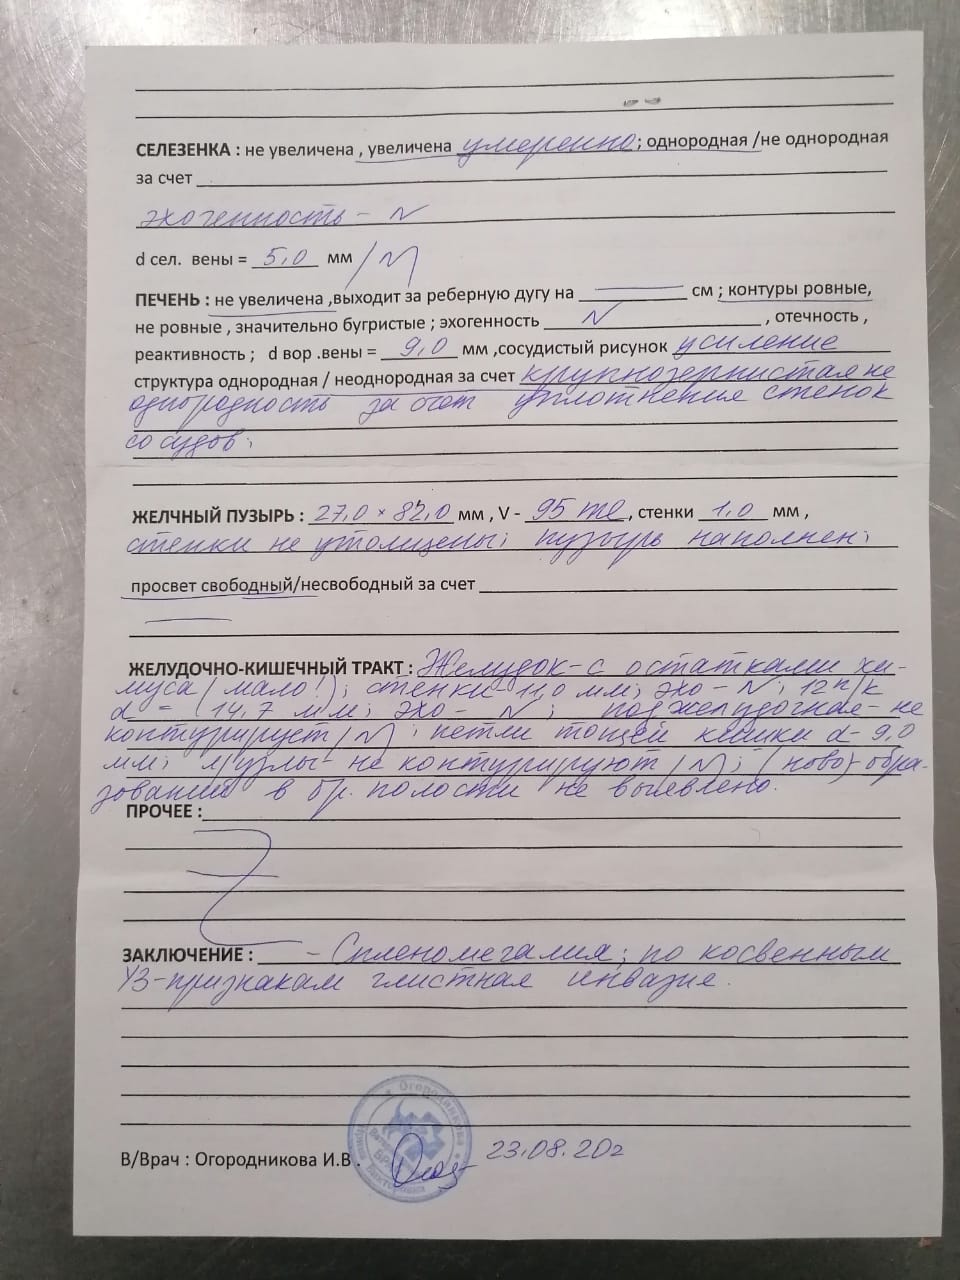 СЕЛЕЗЕНКА : не увеличена , увеличена умеренно ; однородная /не однородная
за счет
эхогенность - N
d сел. вены = 5,0 мм /N
ПЕЧЕНЬ : не увеличена ,выходит за реберную дугу на см ; контуры ровные,
не ровные , значительно бугристые ; эхогенность N , отечность ,
реактивность ; d вор .вены = 9,0 мм ,сосудистый рисунок усиление
структура однородная / неоднородная за счет крупнозернистая не
однородность за счет уплотнения стенок
сосудов;
ЖЕЛЧНЫЙ ПУЗЫРЬ : 27,0 × 82,0 мм , V - 95 ml , стенки 1,0 мм ,
стенки не утолщены; пузырь наполнен;
просвет свободный/несвободный за счет
ЖЕЛУДОЧНО-КИШЕЧНЫЙ ТРАКТ : Желудок - с остатками хи-
муса (мало!); стенки - 11,0 мм; эхо - N; 12 п/к
d = (14,7 мм; эхо - N; поджелудочная - не
контурирует /N; петли тощей кишки d - 9,0
мм; л/узлы - не контурируют /N; (ново)-обра-
зований в бр. полости не выявлено.
ПРОЧЕЕ :
ЗАКЛЮЧЕНИЕ : - Спленомегалия; по косвенным
УЗ-признакам глистная инвазия.
Огородникова
В/Врач : Огородникова И.В . 23.08.202